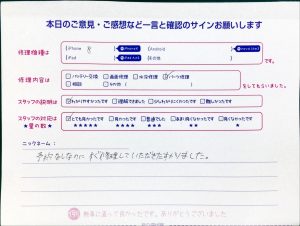 本日のご意見・ご感想など一言と確認のサインお願いします
修理機種は
iPhone 8
Android
iPad
その他
です。
修理内容は
バッテリー交換 画面修理 水没修理 パーツ修理
相談 その他
をしてもらいました。
スタッフの説明は
わかりやすかったです 理解できました 少しわかりにくかったです 難しかったです
スタッフの対応は
★星の数★
とても良かったです 良かったです 普通でした あまり良くなかったです 良くなかったです
★★★★★ ★★★★ ★★★ ★★ ★
ニックネーム：
予約なしなのにすぐ修理していただきたすかりました。
無事に直って良かったです。ありがとうございました